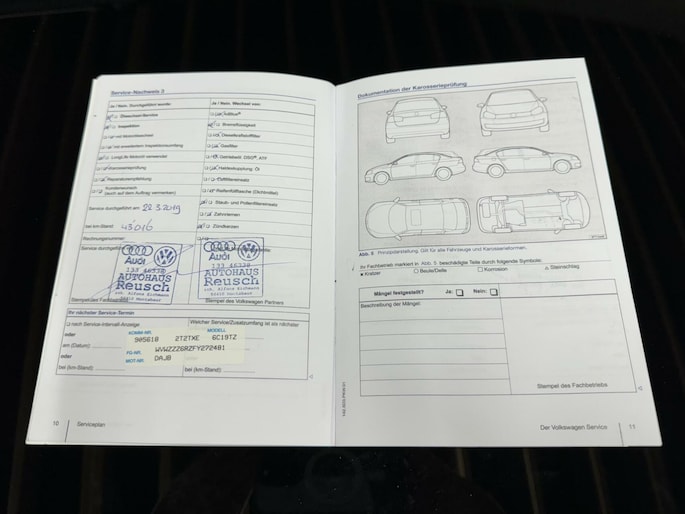 Service-Nachweis 3
Ja / Nein: Durchgeführt wurde:
Ja / Nein: Wechsel von:
Ölwechsel-Service
Inspektion
Bremsflüssigkeit
mit Motorölwechsel
Dieselkraftstofffilter
mit erweitertem Inspektionsumfang
Gasfilter
LongLife Motoröl verwendet
Getriebeöl: DSG®, ATF
Karosserieprüfung
Haldexkupplung: Öl
Reparaturempfehlung
Luftfiltereinsatz
Kundenwunsch
(auch auf dem Auftrag vermerken)
Reifenfüllflasche (Dichtmittel)
Service durchgeführt am: 22.3.2019
Staub- und Pollenfiltereinsatz
Zahnriemen
bei km-Stand: 43016
Zündkerzen
Rechnungsnummer:
Service durchgeführt
Audi
AUTOHAUS
Reusch
Audi
AUTOHAUS
Reusch
Stempel des Volkswagen Partners
Ihr nächster Service-Termin
nach Service-Intervall-Anzeige
Welcher Service/Zusatzumfang ist als nächster
oder
KOMM-NR.
MODELL
905618 2T2TXE 6C19TZ
am (Datum):
FG-NR.
WVWZZZ6RZFY272481
oder
MOT-NR. DAJB
bei (km-Stand):
bei (km-Stand):
10 Serviceplan
Dokumentation der Karosserieprüfung
Abb. 5 Prinzipdarstellung: Gilt für alle Fahrzeuge und Karosserieformen.
Ihr Fachbetrieb markiert in Abb. 5 beschädigte Teile durch folgende Symbole:
x Kratzer
○ Beule/Delle
□ Korrosion
△ Steinschlag
Mängel festgestellt? Ja: Nein:
Beschreibung der Mängel:
Stempel des Fachbetriebs
Der Volkswagen Service 11